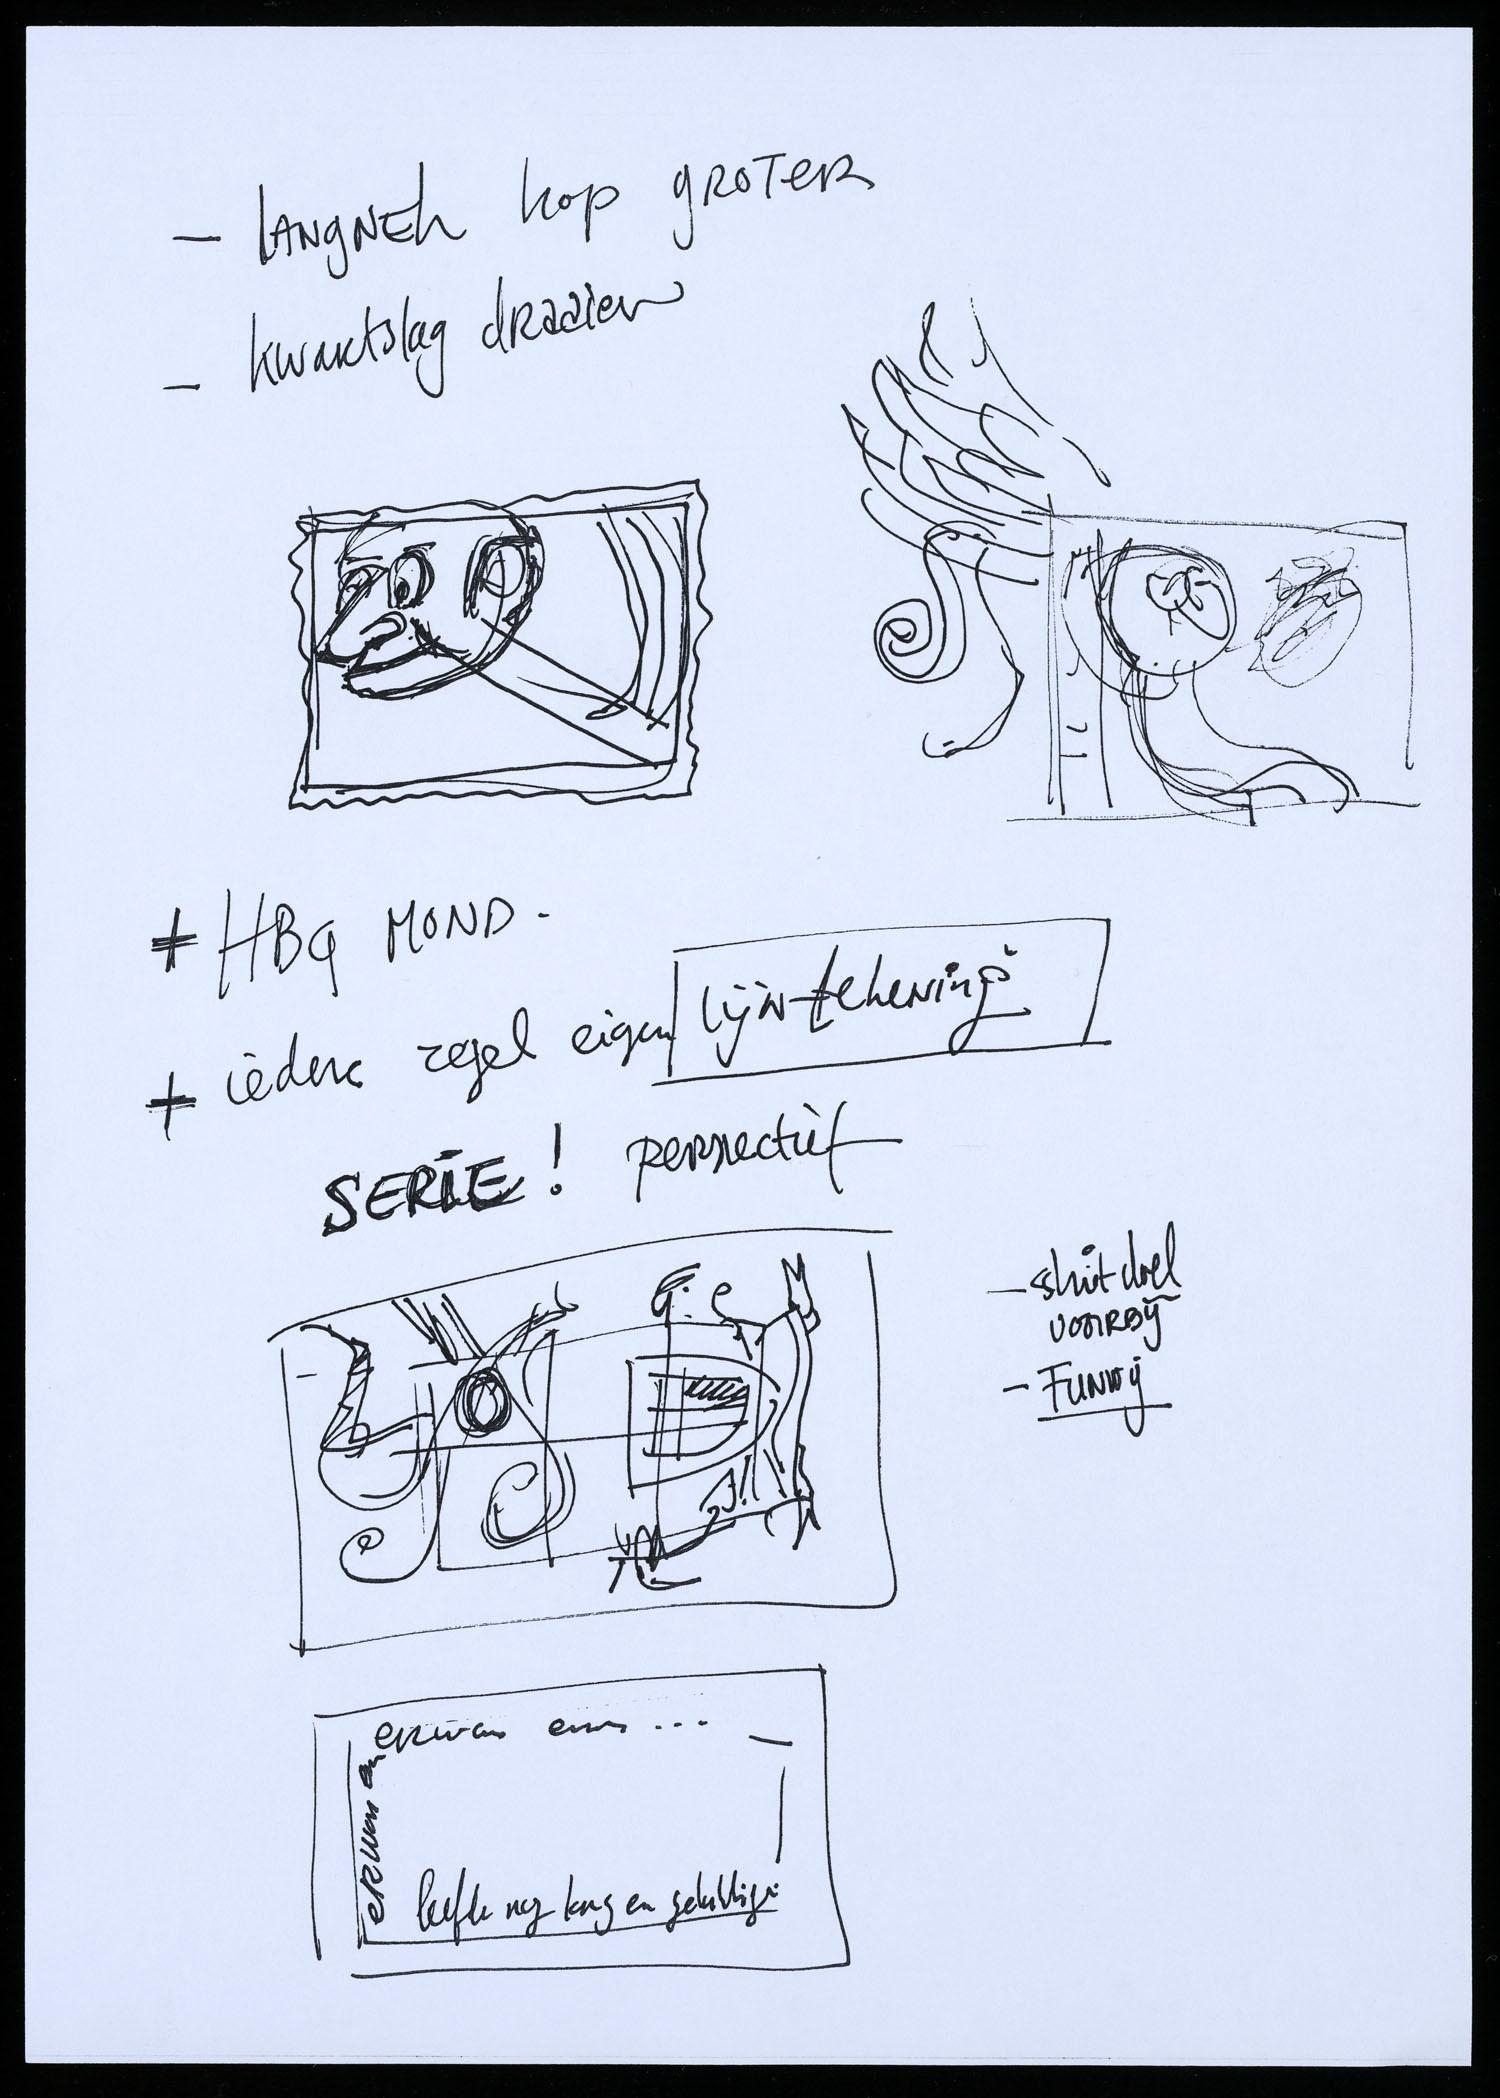 - LANGNEK kop groter
- kwartslag draaien
+ HBG MOND.
+ iedere regel eigen lijn-tekening
SERIE! perspectief
- shiit doel
voorbij
- FUNNY
G. e
er was eens ...
er was een
leefde nog lang en gelukkig